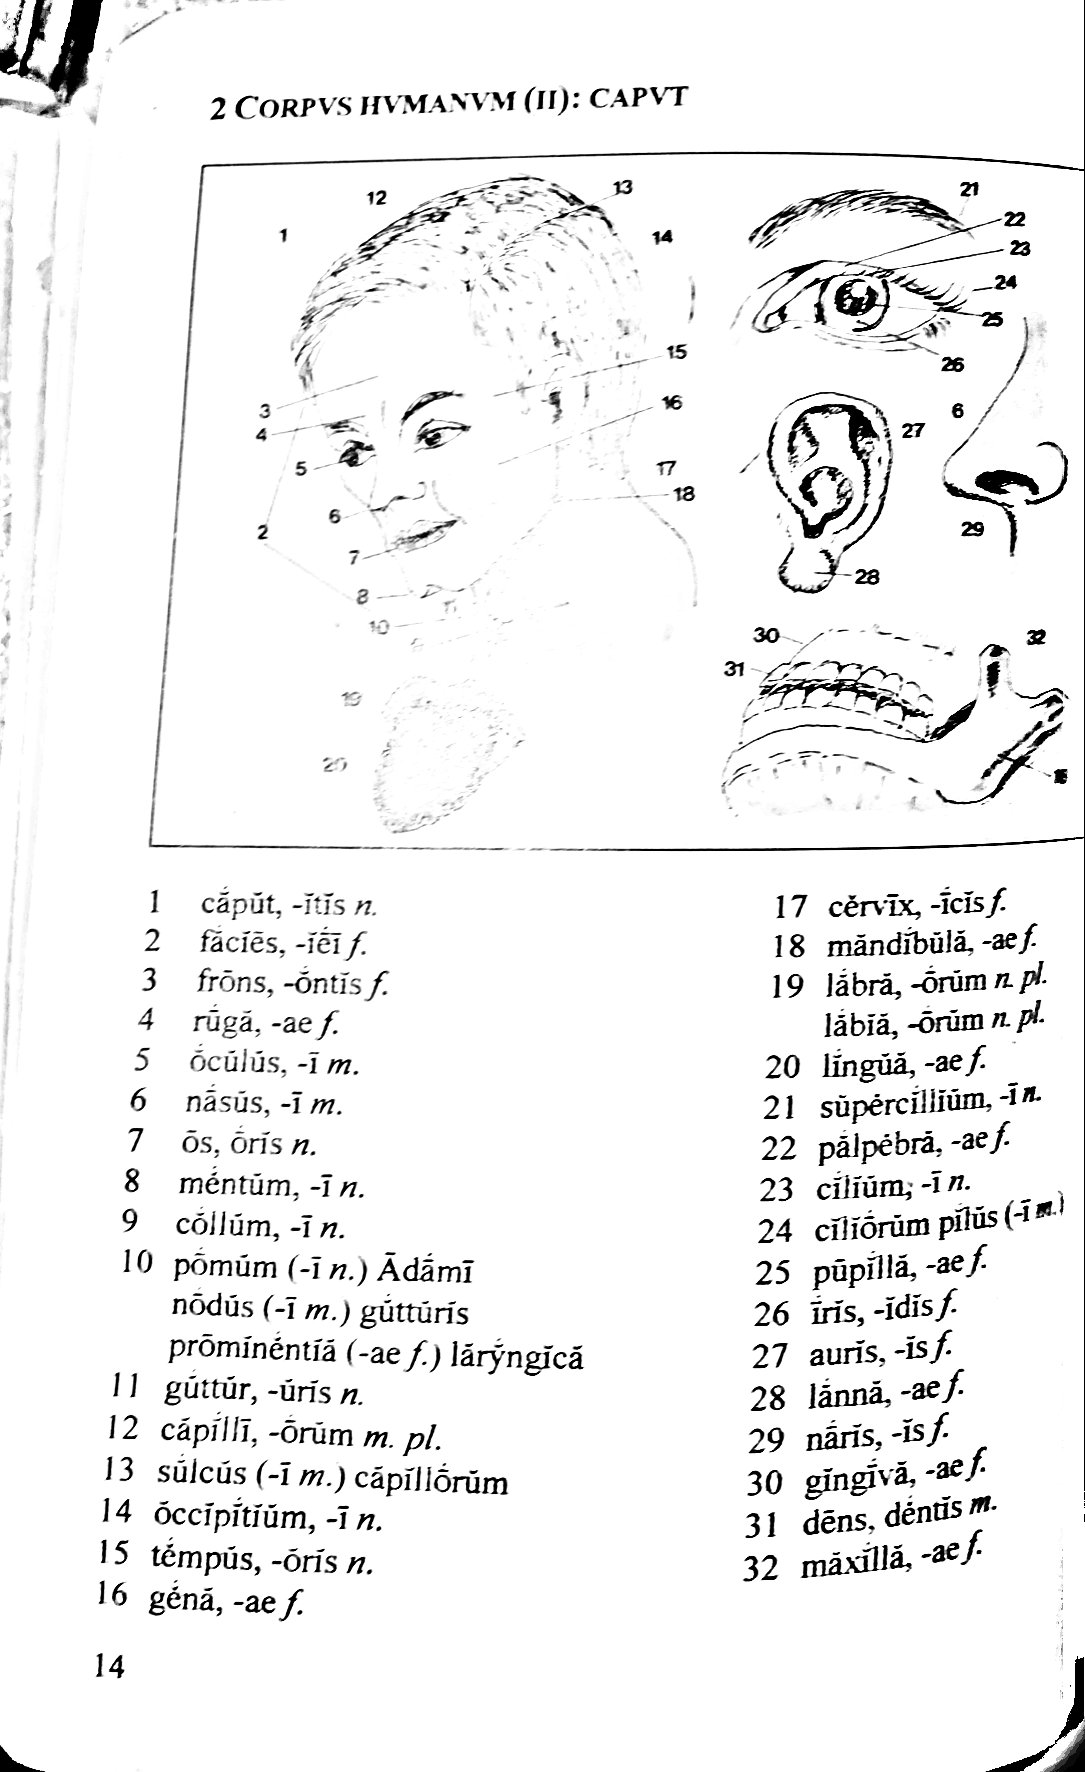 2 CORPVS HVMANVM (II): CAPVT
12
13
1
14
15
3
16
4
5
17
18
6
2
7
8
10
19
20
21
22
23
24
25
26
6
27
29
28
30
32
31
1 cắpŭt, -ĭtĭs n.
2 făcĭēs, -ĭēī f.
3 frōns, -óntĭs f.
4 rūgă, -ae f.
5 ŏcŭlŭs, -ī m.
6 nāsŭs, -ī m.
7 ōs, ōrĭs n.
8 méntŭm, -ī n.
9 cŏllŭm, -ī n.
10 pōmŭm (-ī n.) Ādāmī
nōdŭs (-ī m.) gŭttŭrĭs
prōmĭnéntĭă (-ae f.) lărýngĭcă
11 gŭttŭr, -ŭrĭs n.
12 căpĭllī, -ōrŭm m. pl.
13 sŭlcŭs (-ī m.) căpĭllōrŭm
14 ŏccĭpĭtĭŭm, -ī n.
15 témpŭs, -ŏrĭs n.
16 gĕnă, -ae f.
17 cĕrvīx, -īcĭs f.
18 măndĭbŭlă, -ae f.
19 lăbră, -ōrŭm n. pl.
lăbĭă, -ōrŭm n. pl.
20 lĭngŭă, -ae f.
21 sŭpĕrcĭlĭŭm, -ī n.
22 pălpĕbră, -ae f.
23 cĭlĭŭm, -ī n.
24 cĭlĭōrŭm pĭlŭs (-ī m.)
25 pūpĭllă, -ae f.
26 īrĭs, -ĭdĭs f.
27 aurĭs, -ĭs f.
28 lănnă, -ae f.
29 nārĭs, -ĭs f.
30 gĭngīvă, -ae f.
31 dēns, déntĭs m.
32 măxĭllă, -ae f.
14